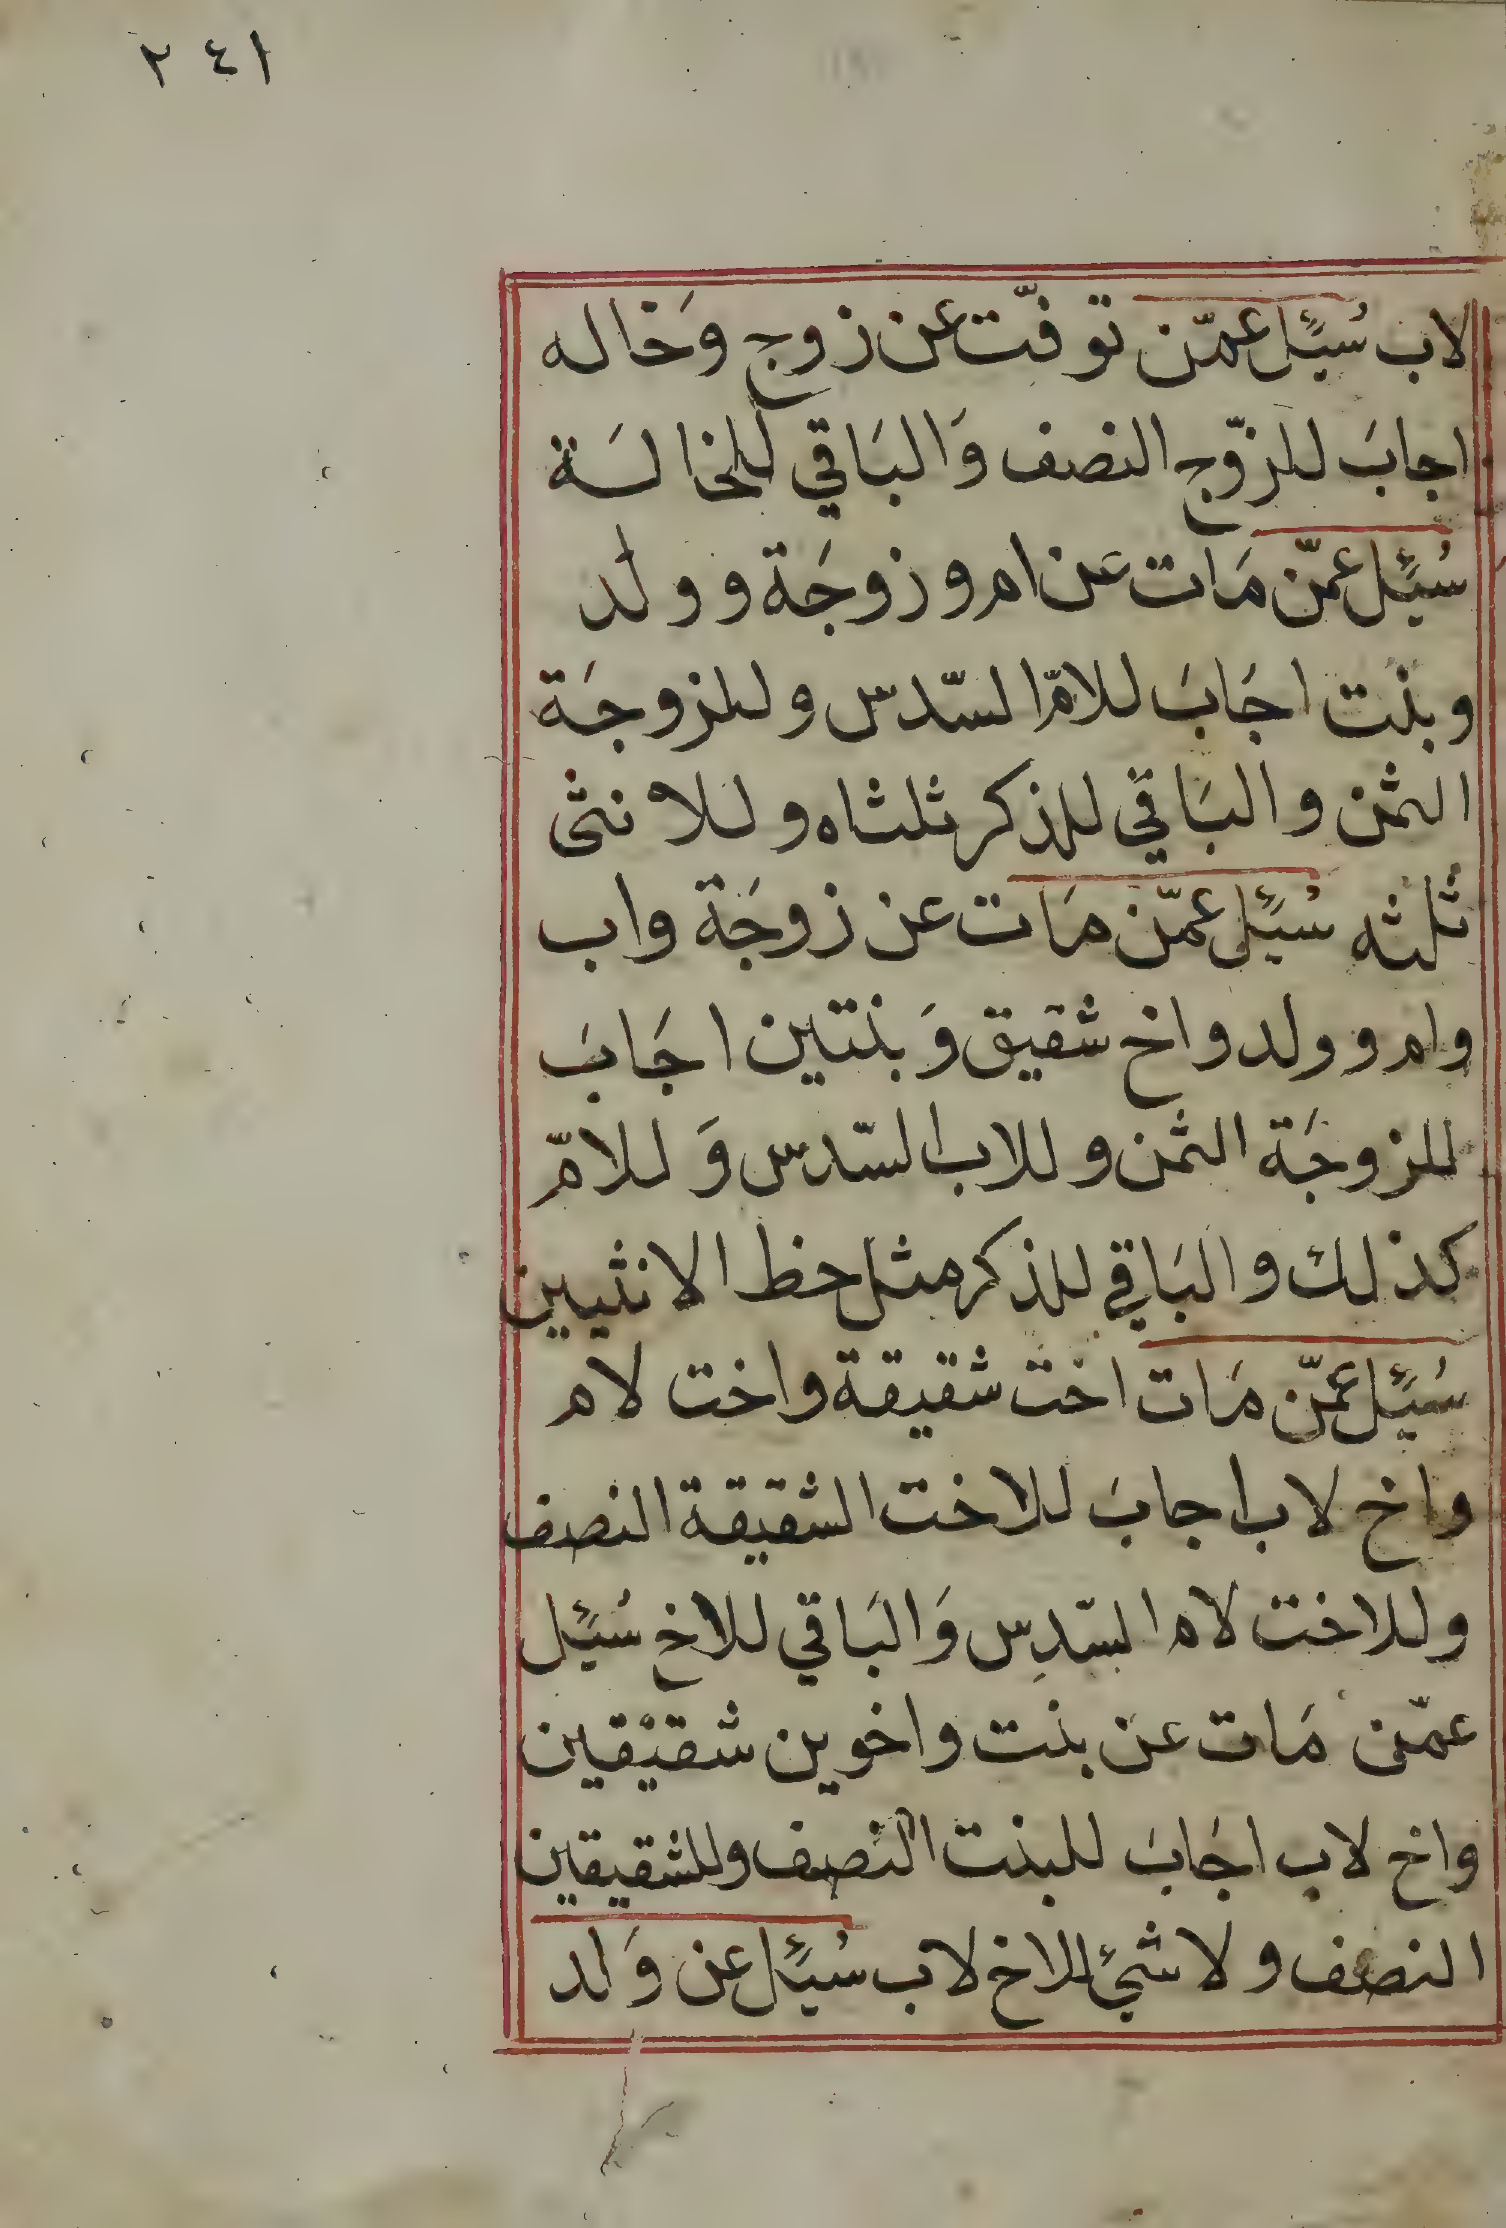 ٢٤١
لاب سُئِل عمّن توفّت عن زوج وَخاله
اجابَ للزّوج النصف وَالبَاقي للخالسَة
سُئِل عمّن مَات عَن ام وزوجَة وولد
وبنت اجَابَ للامّ السّدس وللزوجَة
الثمن والبَاقي للذكر ثلثاه وللانثى
ثلثه سُئِل عمّن مَات عن زوجَة واب
وام وولد واخ شقيق وَبنتين اجَابَ
للزوجَة الثمن وللاب السّدس وَللامّ
كذلك والبَاقي للذكر مثل حظ الانثيين
سُئِل عمّن مَات اخت شقيقة واخت لام
واخ لاب اجابَ للاخت الشقيقة النصف
وللاخت لام السّدس وَالبَاقي للاخ سُئِل
عمّن مَات عن بنت واخوين شقيقين
واخ لاب اجَابَ للبنت النَصف وللشقيقين
النصف ولا شئ للاخ لاب سُئِل عن وَلد